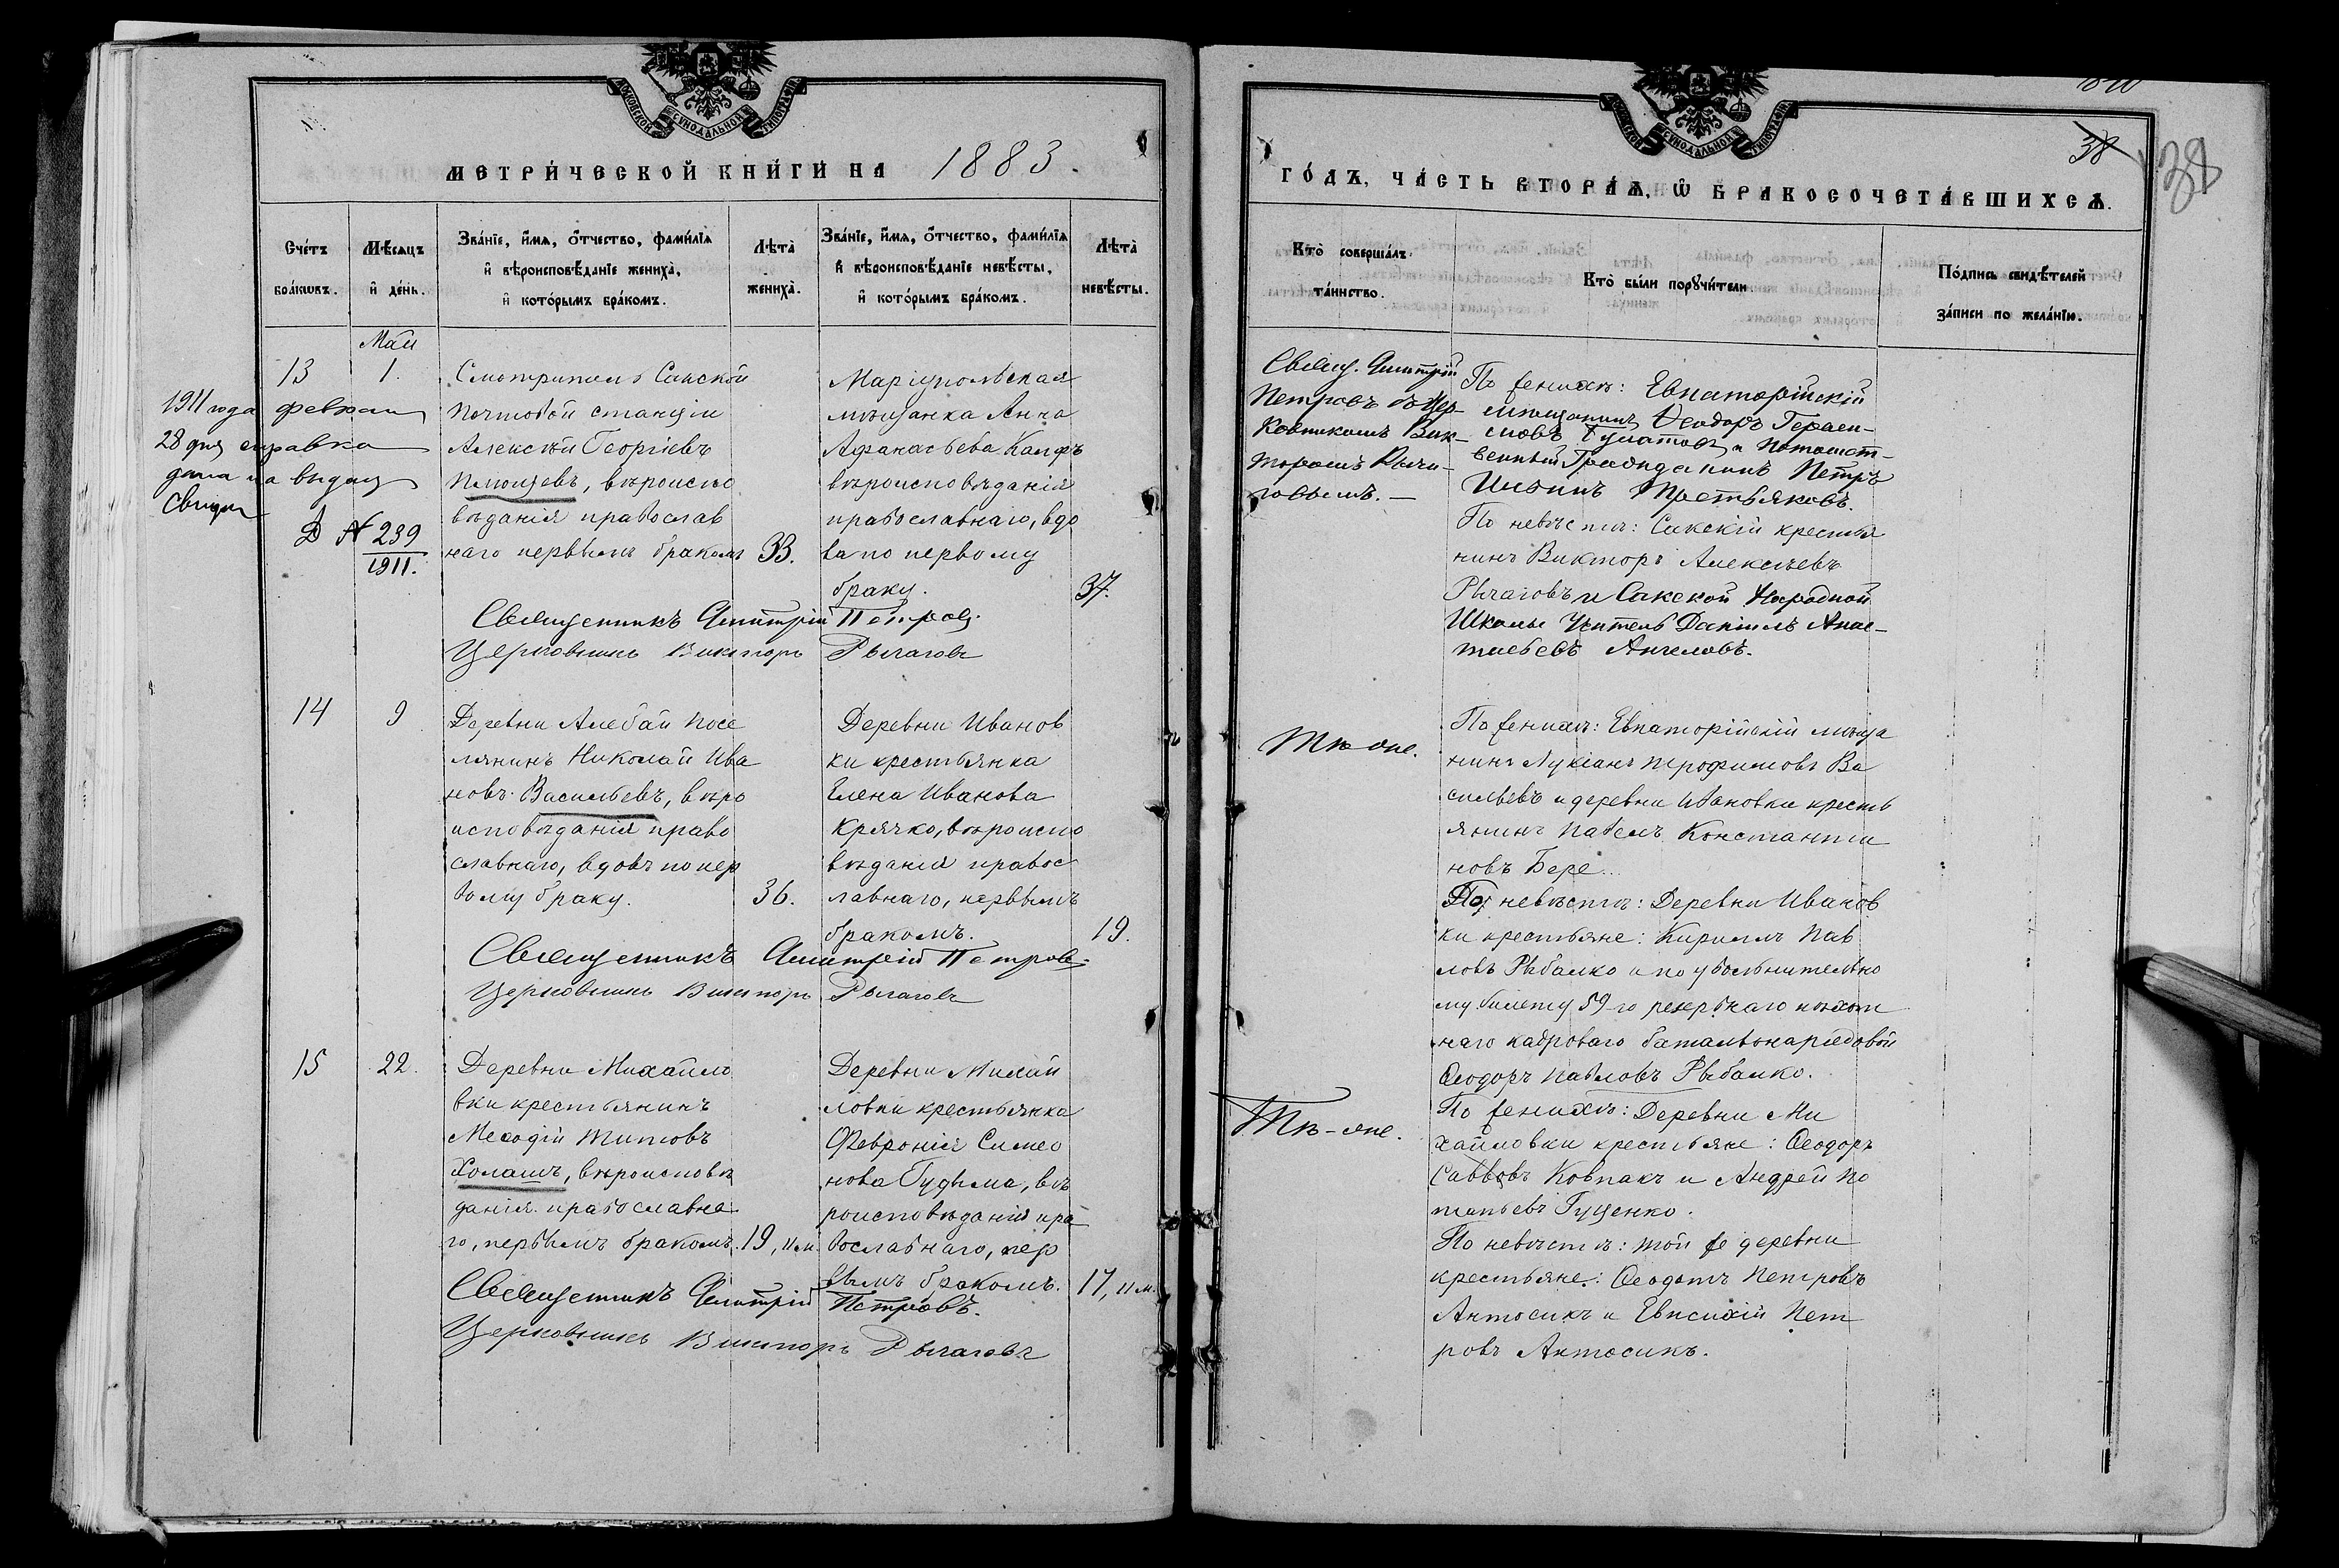 МОСКОВСКОЙ СУНОДАЛЬНОЙ ТИПОГРАФІИ
МЕТРИ́ЧЕСКОЙ КНИ́ГИ НА 1883.
Сче́тъ бра́кѡвъ.
Мѣ́сяцъ и҆ де́нь.
Зва́нїе, и҆́мѧ, ѻ҆́тчество, фамилїѧ
и҆ вѣроисповѣ́данїе жениха̀,
и҆ кото́рымъ бра́комъ.
Лѣта̀
жениха̀.
Зва́нїе, и҆́мѧ, ѻ҆́тчество, фамилїѧ
и҆ вѣроисповѣ́данїе невѣ́сты,
и҆ кото́рымъ бра́комъ.
Лѣта̀
невѣ́сты.
Май
13
1.
Смотритель Сакской
почтовой станціи
Алексѣй Георгіевъ
Плющевъ, вѣроиспо
вѣданія православ
наго первымъ бракомъ
33.
Маріупольская
мѣщанка Анна
Афанасьева Капфъ
вѣроисповѣданія
православнаго, вдо
ва по первому
браку.
37.
1911 года февраля
28 дня справка
дана на выдачу
D № 239
1911.
Священникъ Димитрій Петровъ.
Церковникъ Викторъ Рычаговъ
14
9
Деревни Алебай посе
лянинъ Николай Ива
новъ Васильевъ, вѣро
исповѣданія право
славнаго, вдовъ по пер
вому браку.
36.
Деревни Иванов
ки крестьянка
Елена Иванова
Крячко, вѣроиспо
вѣданія правос
лавнаго, первымъ
бракомъ.
19.
Священникъ Димитрій Петровъ.
Церковникъ Викторъ Рычаговъ
15
22.
Деревни Михайло
вки крестьянинъ
Меѳодій Титовъ
Холашъ, вѣроисповѣ
данія православна
го, первымъ бракомъ.
19, 11 м.
Деревни Михай
ловки крестьянка
Февронія Симео
нова Гудыма, вѣ
роисповѣданія пра
вославнаго, пер
вымъ бракомъ.
17, 11 м.
Священникъ Димитрій Петровъ.
Церковникъ Викторъ Рычаговъ
МОСКОВСКОЙ СУНОДАЛЬНОЙ ТИПОГРАФІИ
38
38
ГО́ДЪ, ЧА́СТЬ ВТОРА́Ѧ, Ѡ҆ БРАКОСОЧЕТА́ВШИХСѦ.
Кто̀ соверша́лъ
та́инство.
Кто̀ бы́ли порꙋчи́тели.
По́дпись свидѣ́телей
за́писи по жела́нїю.
Свящ. Димитрій
Петровъ съ Цер-
ковникомъ Вик-
торомъ Рыча-
говымъ. —
По жениху: Евпаторійскій
мѣщанинъ Ѳеодоръ Гераси-
мовъ и Потомст-
венный Гражданинъ Петръ
Ильинъ Третьяковъ.
По невѣстѣ: Сакскій крестья
нинъ Викторъ Алексѣевъ
Рычаговъ и Сакской Народной
Школы Учитель Даніилъ Анас-
тасьевъ Ангеловъ.
Тѣ-же.
По женихѣ: Евпаторійскій мѣща
нинъ Лукіанъ Трофимовъ Ва
сильевъ и деревни Ивановки кресть
янинъ Павелъ Константи
новъ Бере...
По невѣстѣ: Деревни Иванов
ки крестьяне: Кириллъ Пав
ловъ Рыбалко и по увольнительно
му билету 59-го резервнаго пѣхот
наго кадроваго баталіона рядовой
Ѳеодоръ Павловъ Рыбалко.
Тѣ-же.
По женихѣ: Деревни Ми
хайловки крестьяне: Ѳеодоръ
Саввовъ Ковпакъ и Андрей По
тапьевъ Гуценко.
По невѣстѣ: той же деревни
крестьяне: Ѳеодотъ Петровъ
Антосикъ и Евпсихій Пет
ровъ Антосикъ.